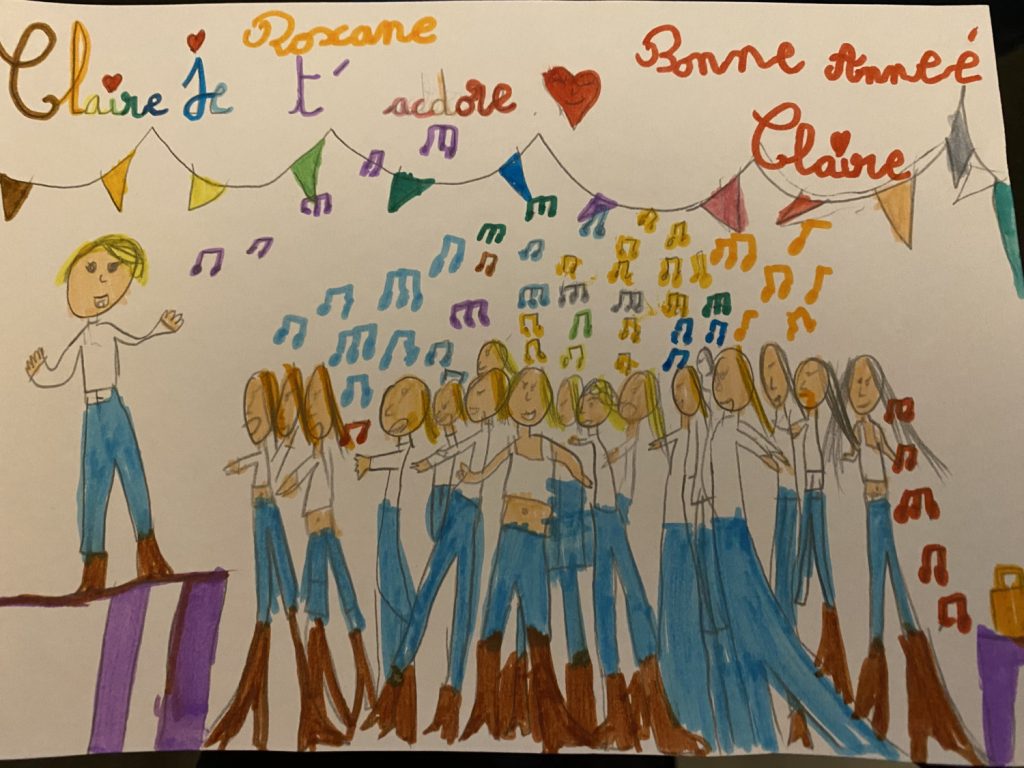 Roxane
Claire Je t' acdore
Bonne Anneé
Claire